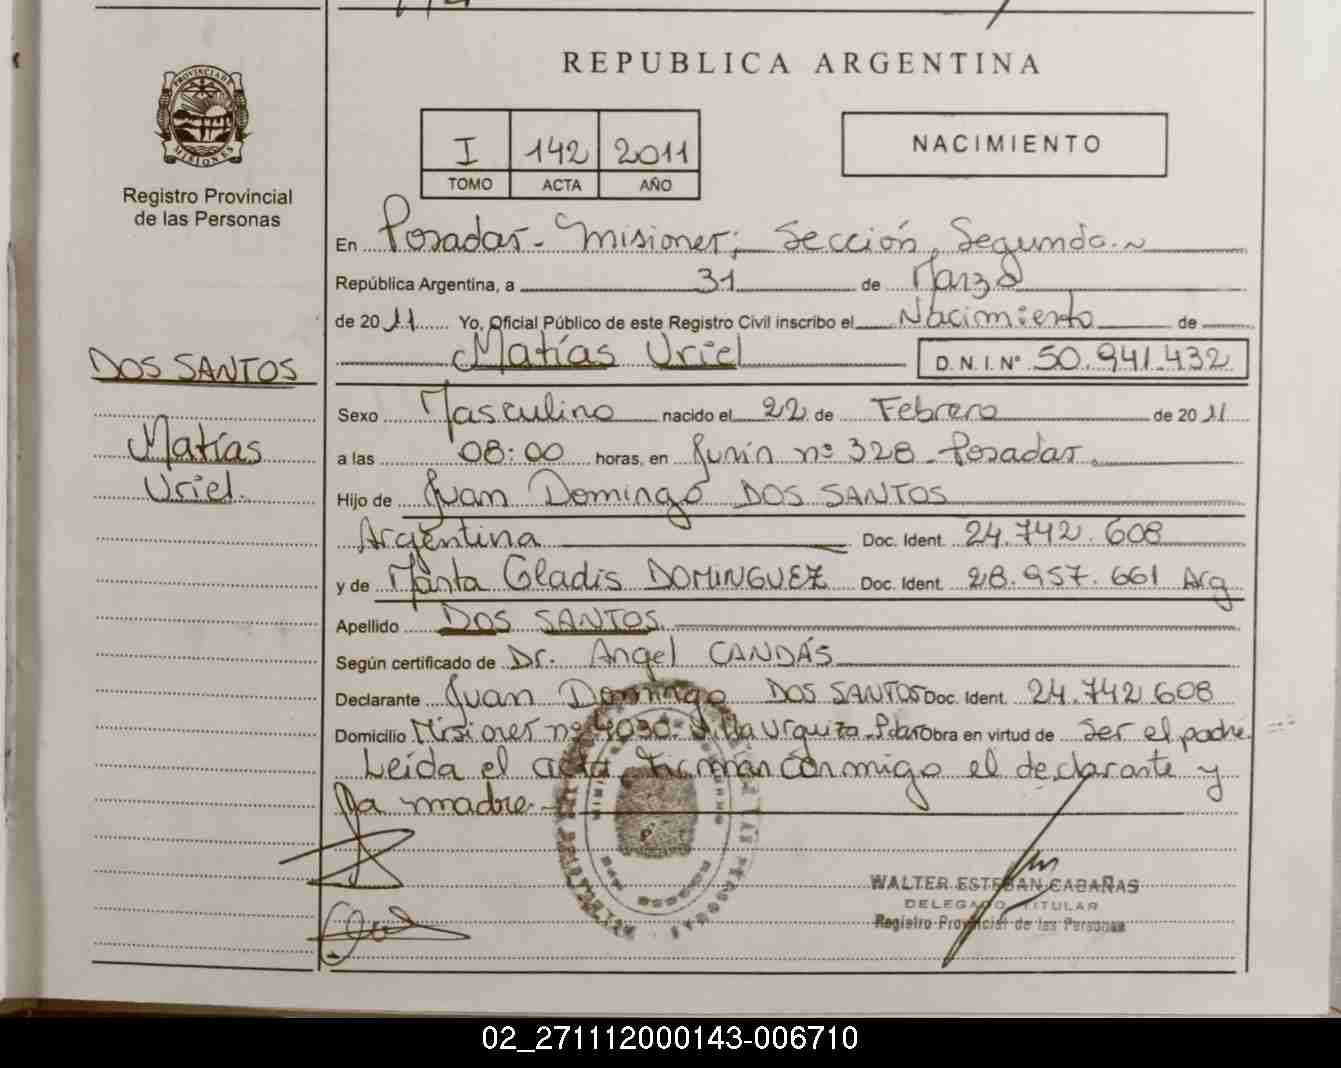 REPUBLICA ARGENTINA
PROVINCIA DE
MISIONES
Registro Provincial
de las Personas
I 142 2011
TOMO ACTA AÑO
NACIMIENTO
En Posadas - Misiones; Sección Segunda.~
República Argentina, a 31 de Marzo
de 2011 Yo, Oficial Público de este Registro Civil inscribo el Nacimiento de
Matías Uriel D.N.I.Nº 50.941.432
DOS SANTOS
Matías
Uriel.
Sexo Masculino nacido el 22 de Febrero de 2011
a las 08:00 horas, en Junín nº 328 - Posadas.
Hijo de Juan Domingo DOS SANTOS
Argentina Doc. Ident. 24.742.608
y de Marta Gladis DOMINGUEZ Doc. Ident. 28.957.661 Arg
Apellido DOS SANTOS.
Según certificado de Dr. Angel CANDÁS
Declarante Juan Domingo DOS SANTOS Doc. Ident. 24.742.608
Domicilio Misiones nº 4030. Villa Urquiza - Pdas Obra en virtud de ser el padre.
Leída el acta, firman conmigo el declarante y
la madre.-
WALTER ESTEBAN CABAÑAS
DELEGADO TITULAR
Registro Provincial de las Personas
02_271112000143-006710